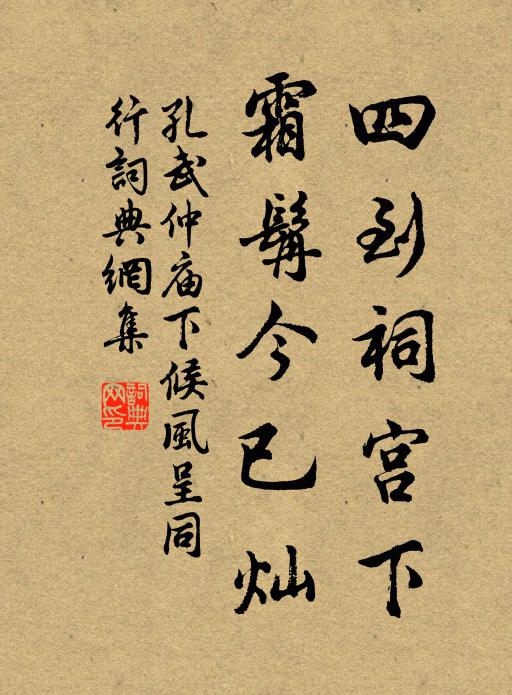 四到祠宫下
霜鬓今已灿
孔武仲庙下候風呈同
行詞典網集
詞典网印